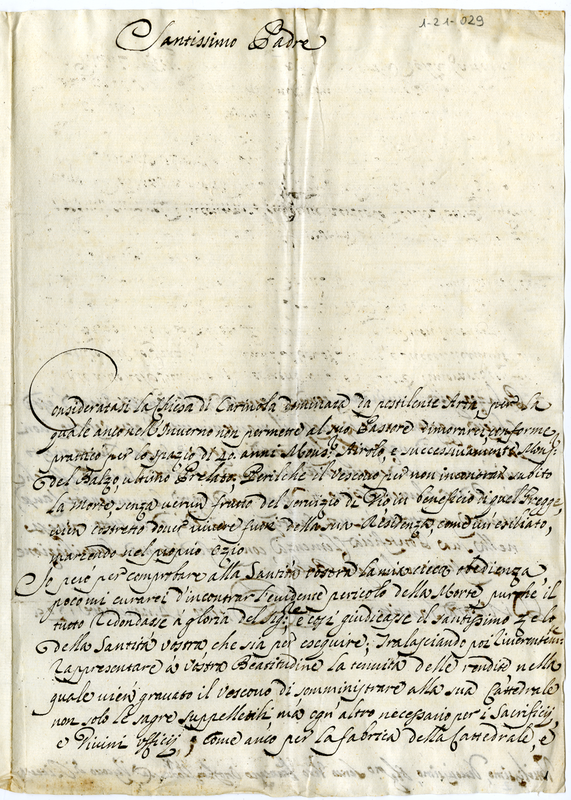 1-21-029
Santissimo Padre
Consideratasi la Chiesa di Carinola dominata da pestilente Aria, per la
quale anco nell Inverno non permette al suo Pastore dimorarci, conforme
pratticò per lo spazio di 40 anni Mons.r Airolo, e successivamente Mons.r
del Balzo ultimo Prelato. Perilche il Vescovo per non incontrar subito
la Morte, senza verun frutto del Servizio di Dio in beneficio di quel Gregge,
vien costretto dover vivere fuor della sua Residenza, come un' esiliato,
marcendo nel proprio ozio.
Io però per comprobare alla Santità Vostra la mia cieca obedienza
poco mi curarei d'incontrar l'evidente pericolo della Morte, purche il
tutto redondasse a gloria del Sig.re e così giudicasse il santissimo zelo
della Santità Vostra, che sia per eseguire; Tralasciando poi riverentem.te
rappresentare à Vostra Beatitudine la tenuità delle rendite nella
quale vien gravato il Vescovo di somministrare alla sua Cattedrale
non solo le sagre suppellettili, mà ogn altro necessario per i Sacrificij,
e Divini Officij; come anco per la fabrica della Cattedrale, e